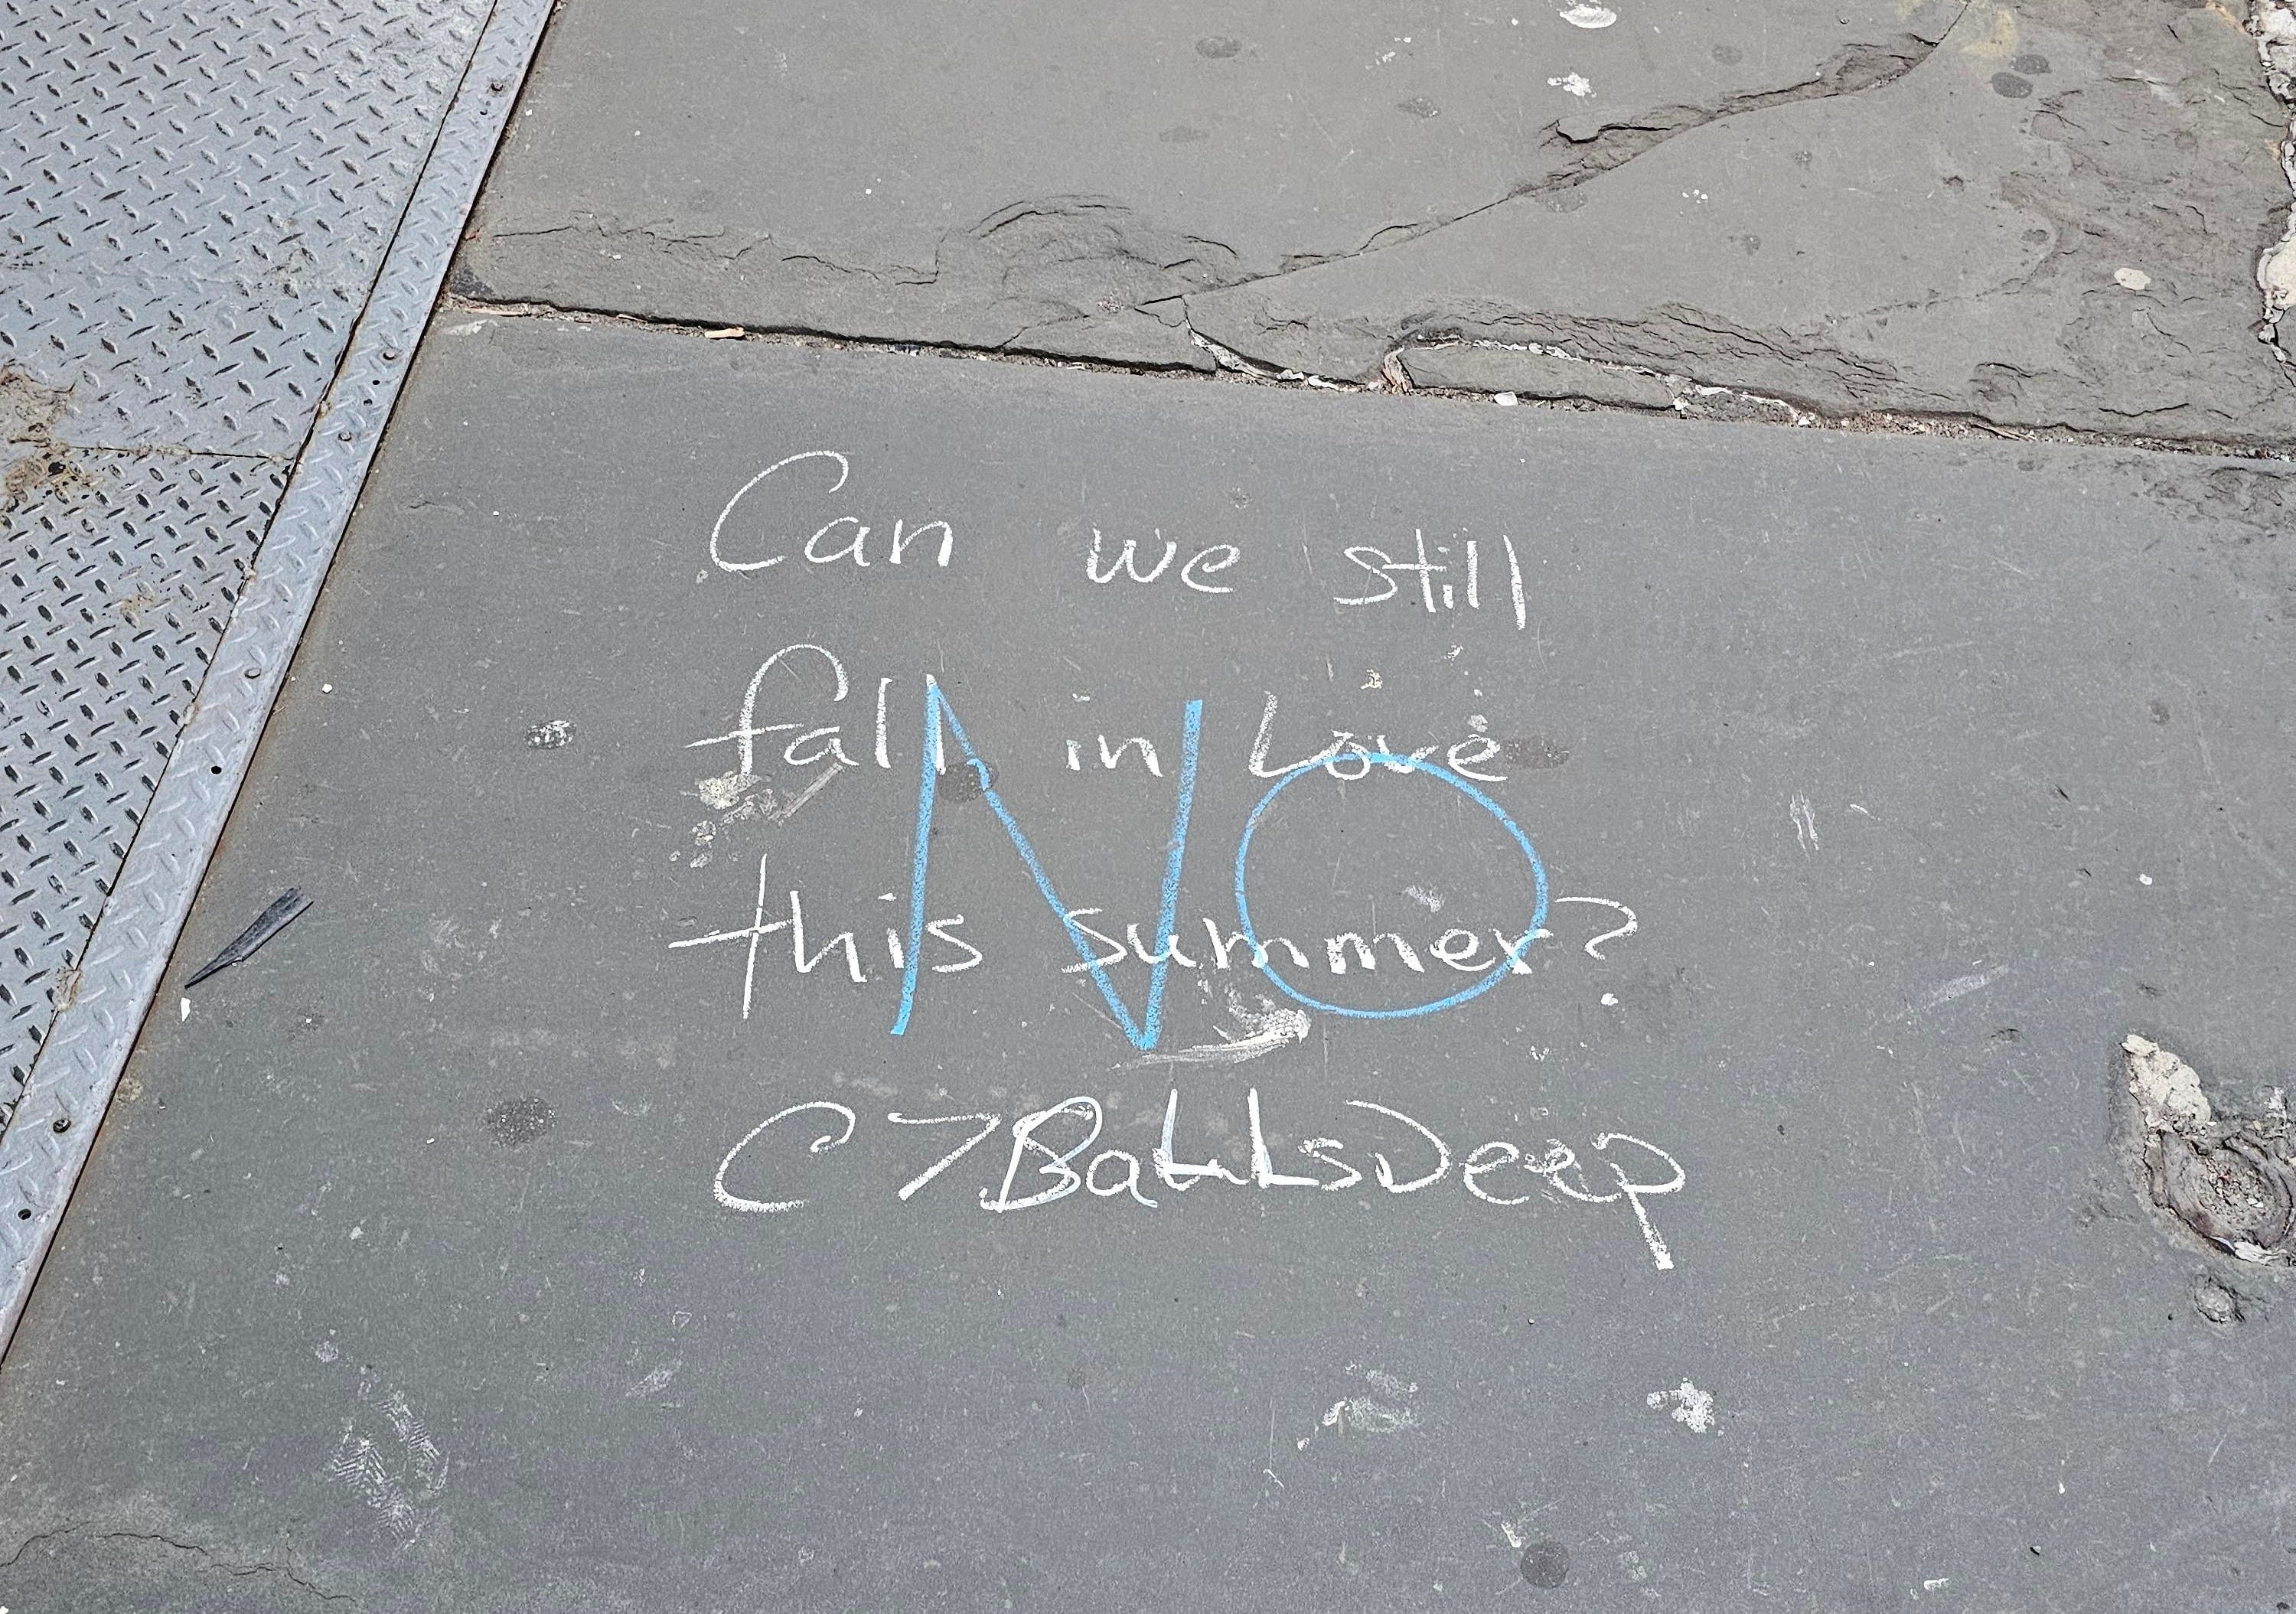 Can we still
fall in Love
this summer?
NO
C7BallsDeep